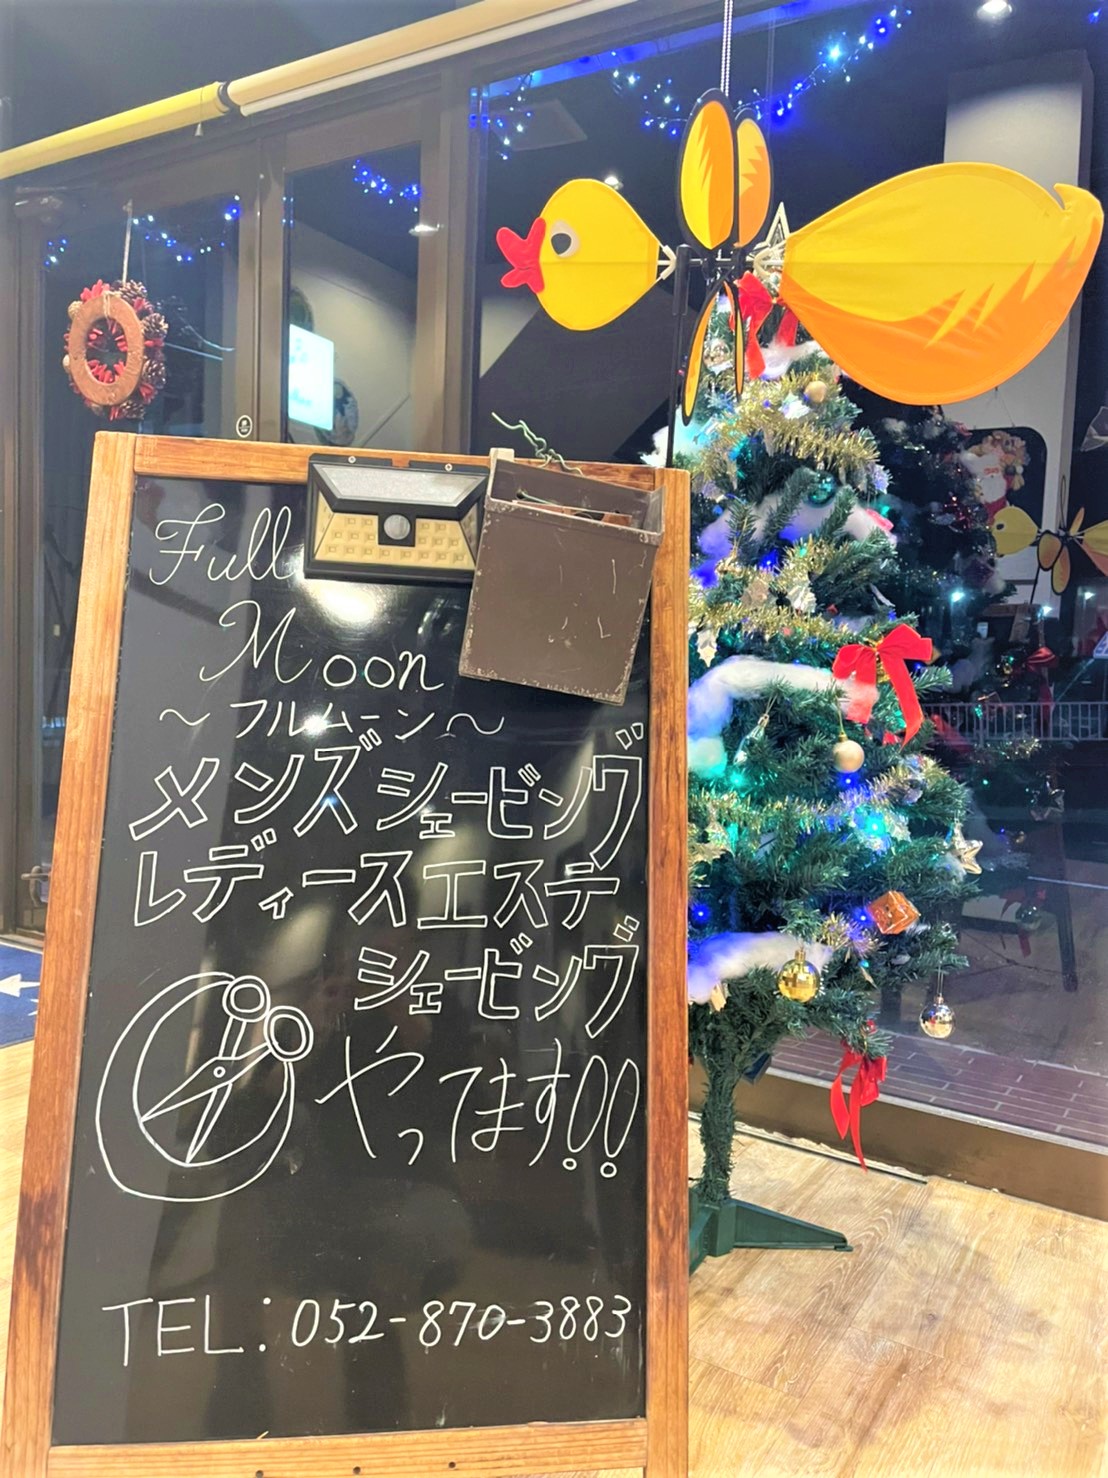 Full
Moon
～フルムーン～
メンズシェービング
レディースエステ
シェービング
やってます!!
TEL：052-870-3883